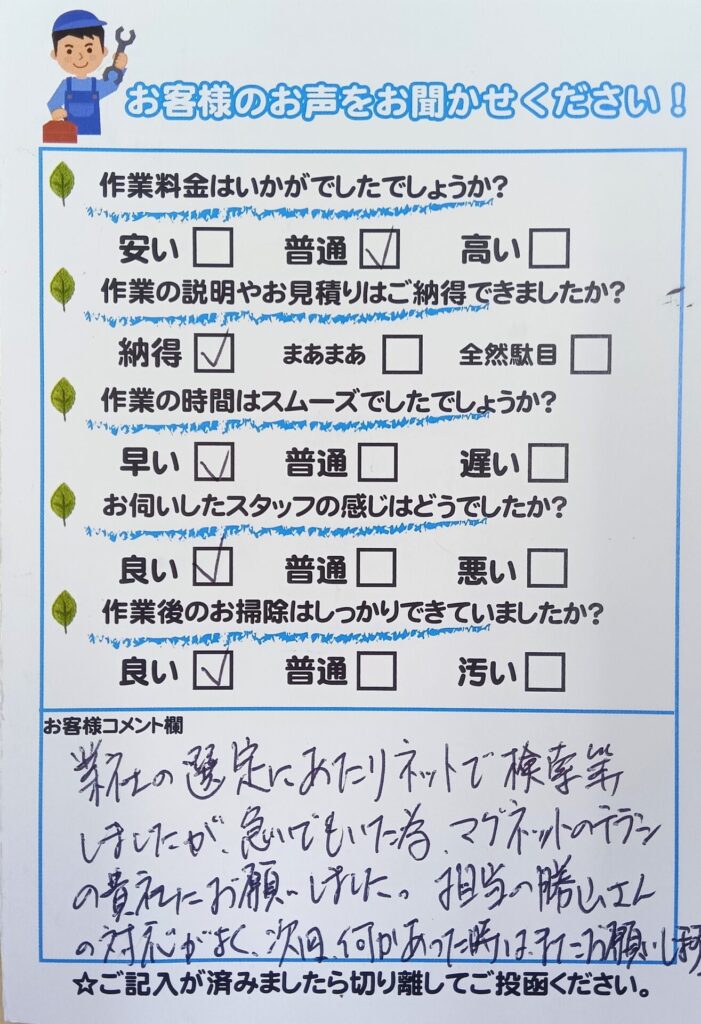 お客様のお声をお聞かせください！
作業料金はいかがでしたでしょうか?
安い 普通 高い
作業の説明やお見積りはご納得できましたか?
納得 まあまあ 全然駄目
作業の時間はスムーズでしたでしょうか?
早い 普通 遅い
お伺いしたスタッフの感じはどうでしたか?
良い 普通 悪い
作業後のお掃除はしっかりできていましたか?
良い 普通 汚い
お客様コメント欄
業社の選定にあたりネットで検索等
しましたが、急いでもいた為、マグネットのチラシ
の貴社にお願いしました。担当の勝山さん
の対応がよく、次回、何かあった時は、またお願いします
☆ご記入が済みましたら切り離してご投函ください。